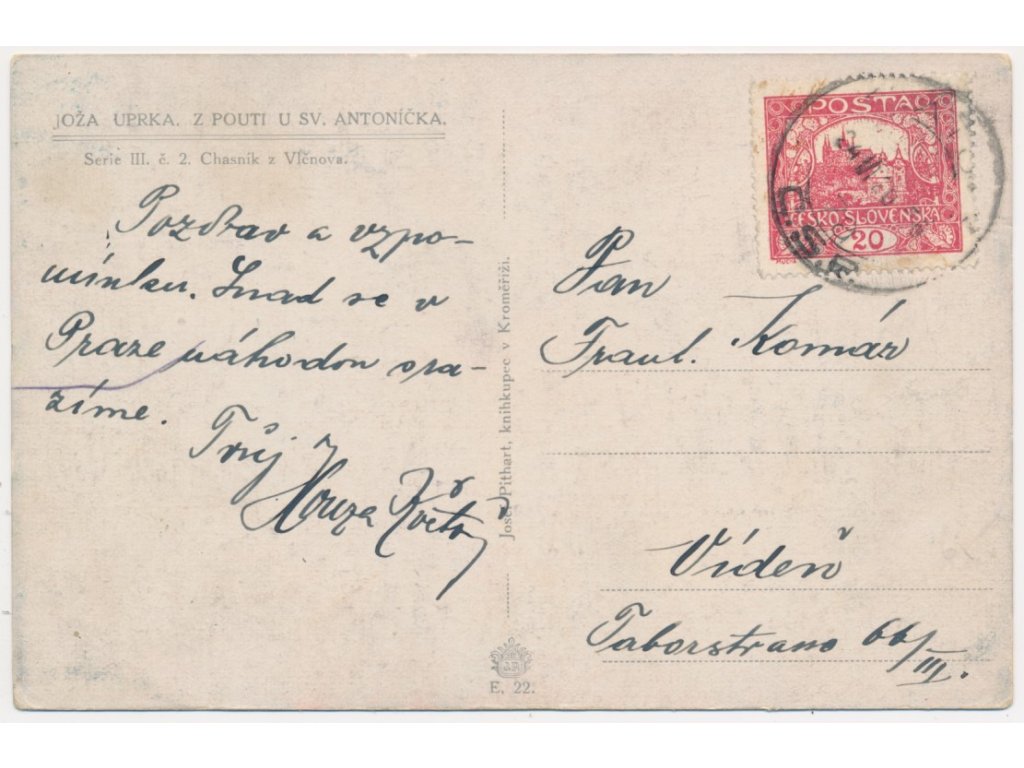 JOŽA UPRKA. Z POUTI U SV. ANTONÍČKA.
Serie III. č. 2. Chasník z Vlčnova.
Pozdrav a vzpo-
mínku. Snad se v
Praze náhodou sra-
zíme.
Tvůj
Josef Pithart, knihkupec v Kroměříži.
E. 22.
POSTA
ČESKO-SLOVENSKÁ
20
Pan
Frant. Komár
Vídeň
Taborstrasse 66/III.